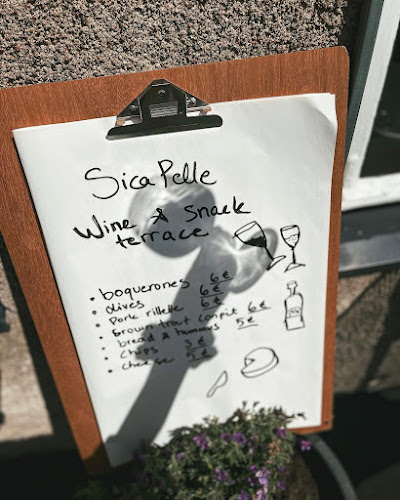 Sicapelle
Wine & Snack
terrace
• boquerones 6€
• olives 6€
• Pork rillette 6€
• Brown trout confit 6€
• bread & hummus 5€
• chips 3€
• cheese 5€